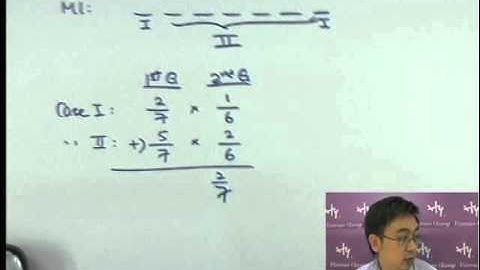 M1: _ _ _ _ _ _ _
I I
II
1st G 2nd G
Case I: 2/7 × 1/6
" II: +) 5/7 × 2/6
2/7